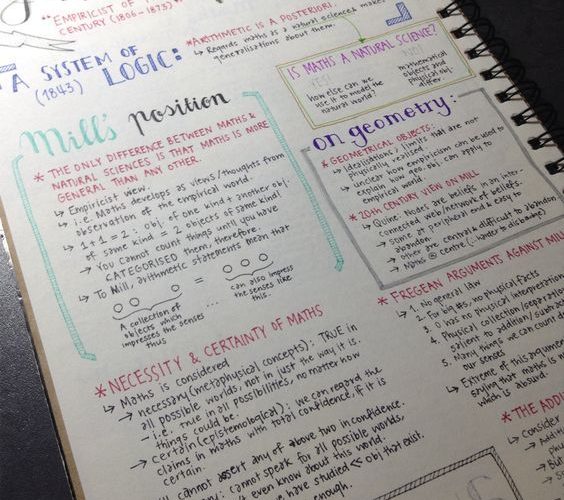 "EMPIRICIST OF
CENTURY (1806-1873)"
*ARITHMETIC IS A POSTERIORI
↳ Regards maths as a natural science; makes
generalisations about them.
A SYSTEM OF
(1843) LOGIC:
IS MATHS A NATURAL SCIENCE?
YES!
How else can we
use it to model the
natural world?
NO!
mathematical
objects and
physical obj.
differ.
Mill's position
* THE ONLY DIFFERENCE BETWEEN MATHS &
NATURAL SCIENCES IS THAT MATHS IS MORE
GENERAL THAN ANY OTHER.
↳ Empiricist view.
↳ i.e. Maths develops as views/thoughts from
observation of the empirical world.
↳ 1+1=2: obj. of one kind + another obj.
of same kind = 2 objects of same kind.
↳ You cannot count things until you have
CATEGORISED them, therefore.
↳ To Mill, arithmetic statements mean that
A collection of
objects which
impresses the senses
thus
...
can also impress
the senses like
this.
on geometry:
* GEOMETRICAL OBJECTS:
↳ Idealisations / limits that are not
physically realised.
↳ unclear how empiricism can be used to
explain how geo. obj. can apply to
empirical world.
* 20TH CENTURY VIEW ON MILL
↳ Quine: Nodes are beliefs in an inter-
connected web/network of beliefs.
↳ some at peripheral end & easy to
abandon.
↳ other are central & difficult to abandon
↳ Maths @ centre (∴ harder to dislodge)
* FREGEAN ARGUMENTS AGAINST MILL
↳ 1. No general law
2. For big #s, no physical facts
3. 0 has no physical interpretation
4. Physical collection/separation
salient to addition/sub
5. Many things we can count
our senses
↳ Extreme of this argument
saying that maths is
which is absurd.
* NECESSITY & CERTAINTY OF MATHS
↳ Maths is considered
→ necessary (metaphysical concepts): TRUE in
all possible worlds, not in just the way it is.
- i.e. true in all possibilities, no matter how
things could be.
→ certain (epistemological): we can regard the
claims in maths with total confidence, if it is
certain.
cannot assert any of above two in confidence
cannot speak for all possible worlds,
even know about this world.
have studied obj that exist.
enough.
* THE ADDI
↳ Consider
↳ Additi